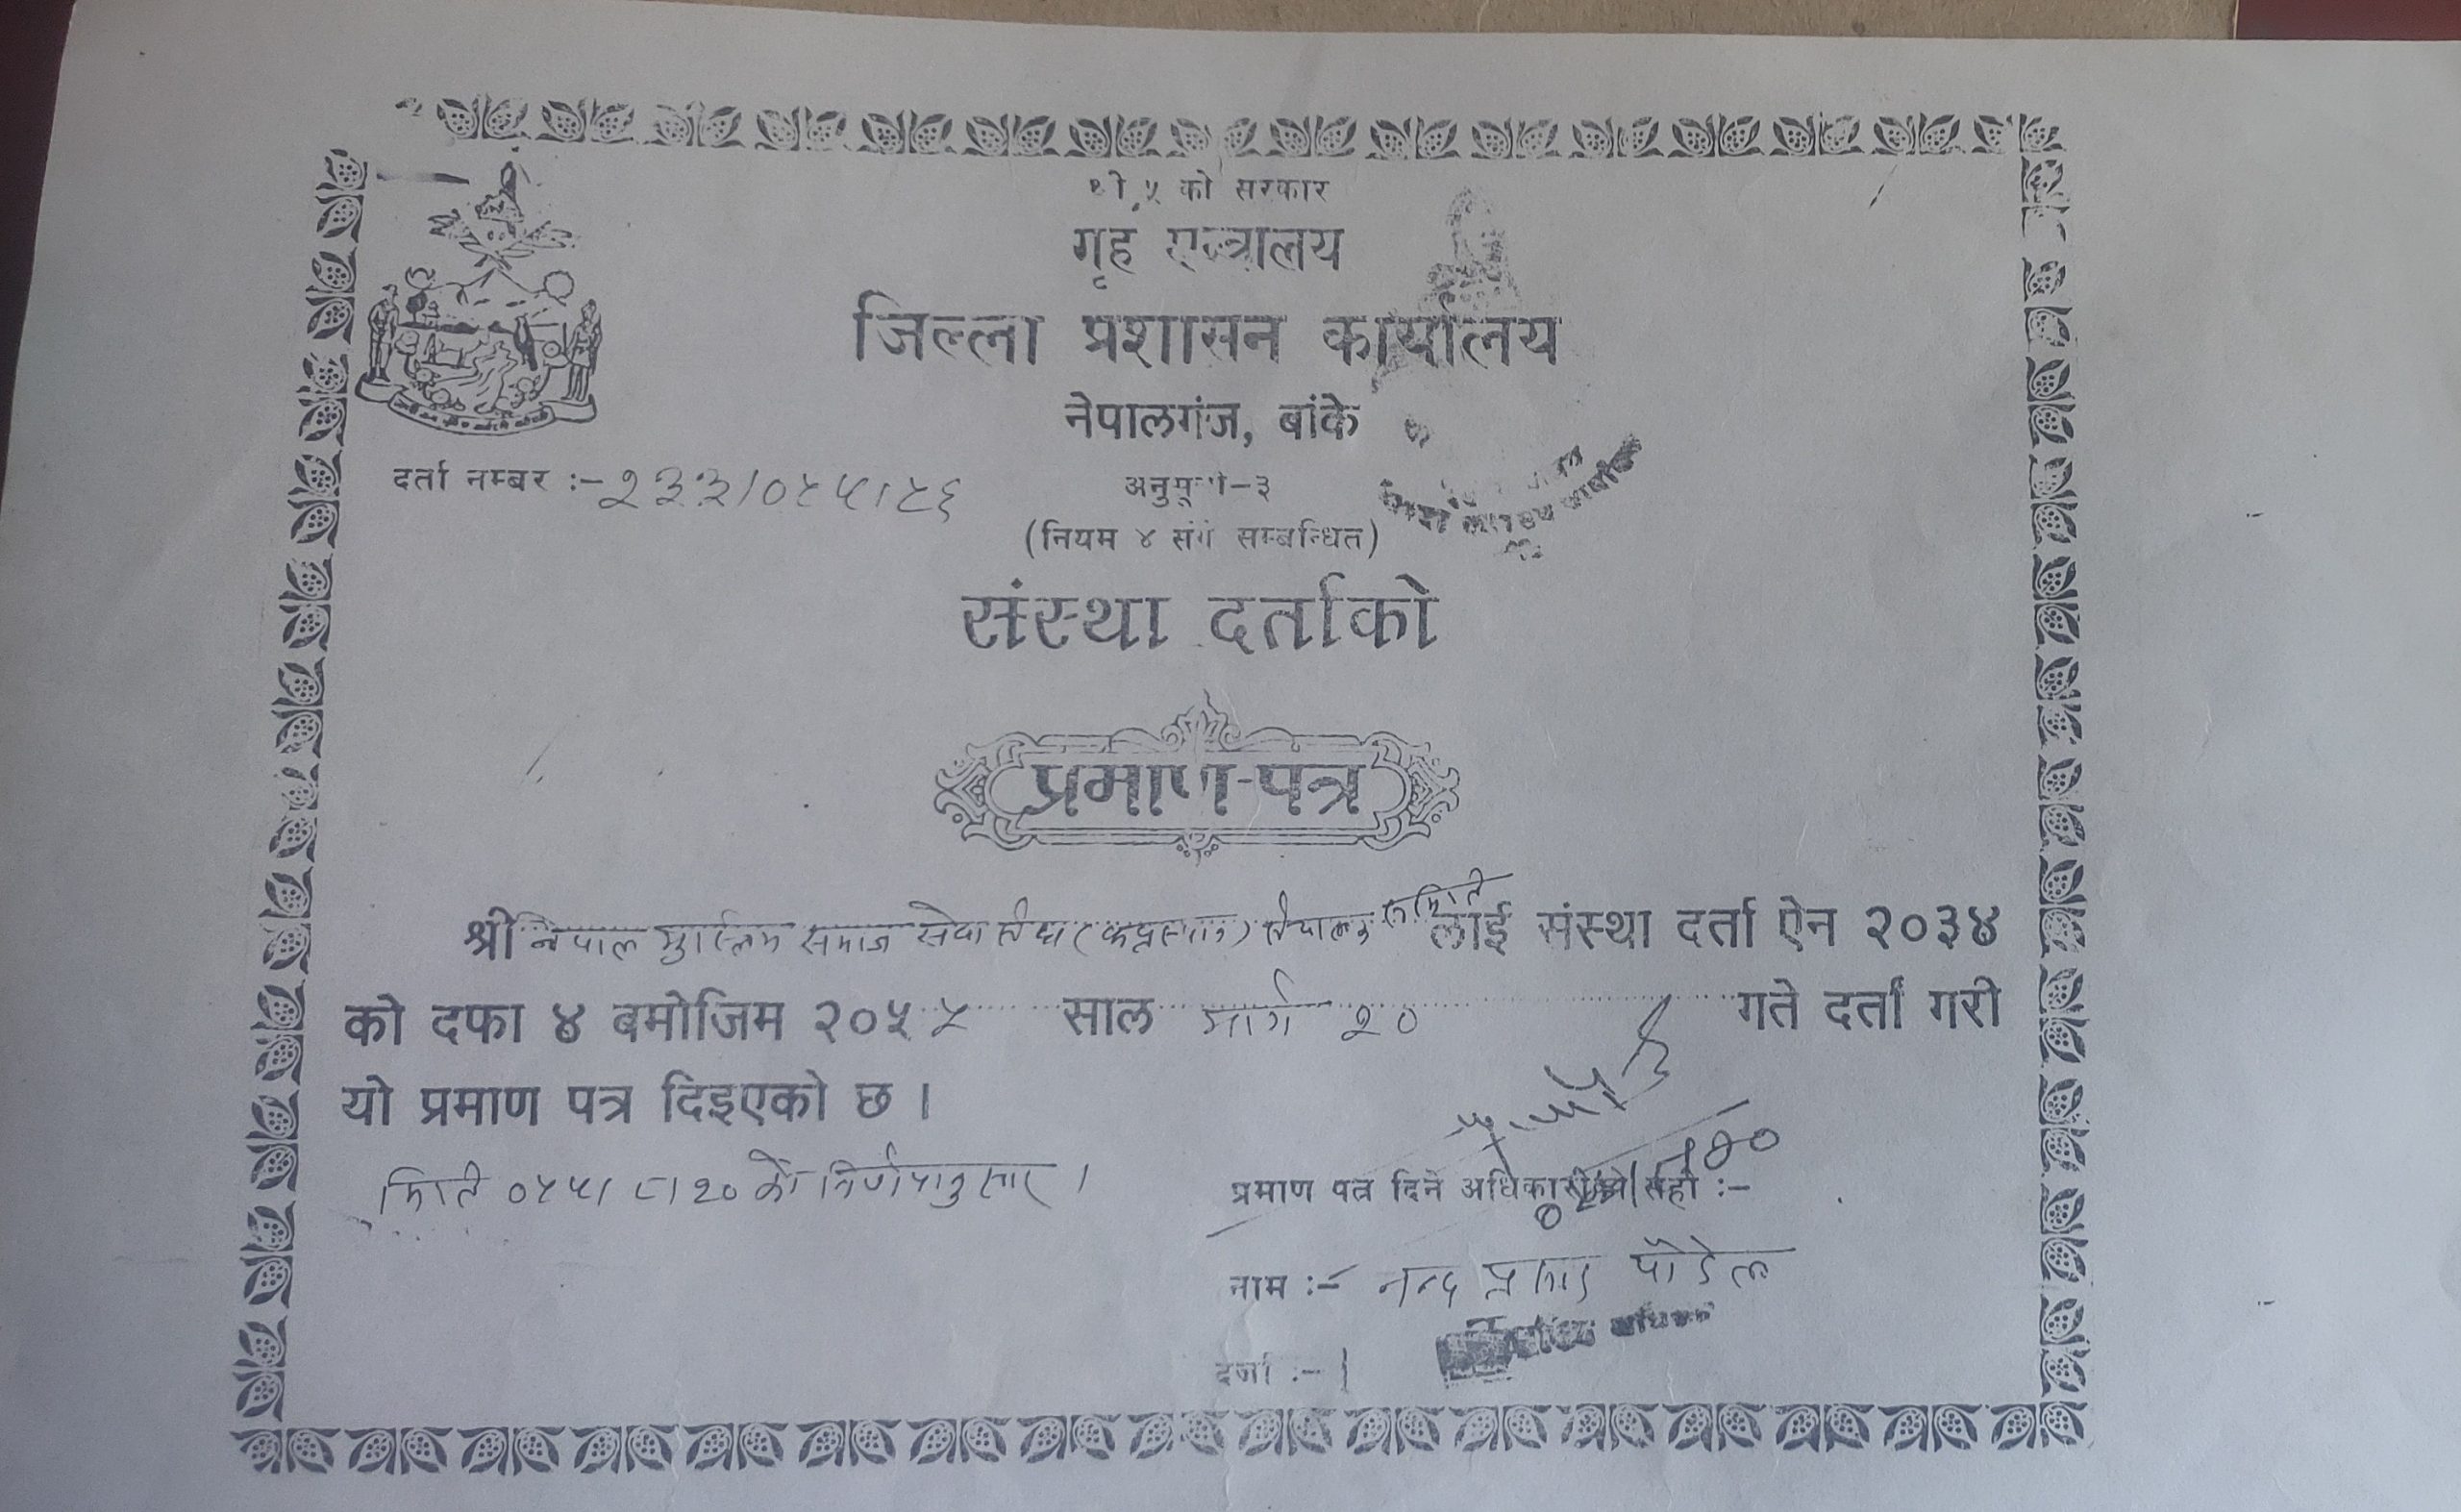 श्री ५ को सरकार
गृह मन्त्रालय
जिल्ला प्रशासन कार्यालय
नेपालगंज, बांके
दर्ता नम्बर :- २३३/०५५/५६
अनुसूची-३
(नियम ४ संग सम्बन्धित)
संस्था दर्ताको
प्रमाण-पत्र
श्री नेपाल मुस्लिम समाज सेवा संघ ( ) संचालक समिति लाई संस्था दर्ता ऐन २०३४
को दफा ४ बमोजिम २०५५ साल मार्ग २० गते दर्ता गरी
यो प्रमाण पत्र दिइएको छ ।
मिति ०५५।८।२० को निर्णयानुसार ।
प्रमाण पत्र दिने अधिकारीको सही :-
नाम :- नन्द प्रसाद पौडेल
दर्जा :-